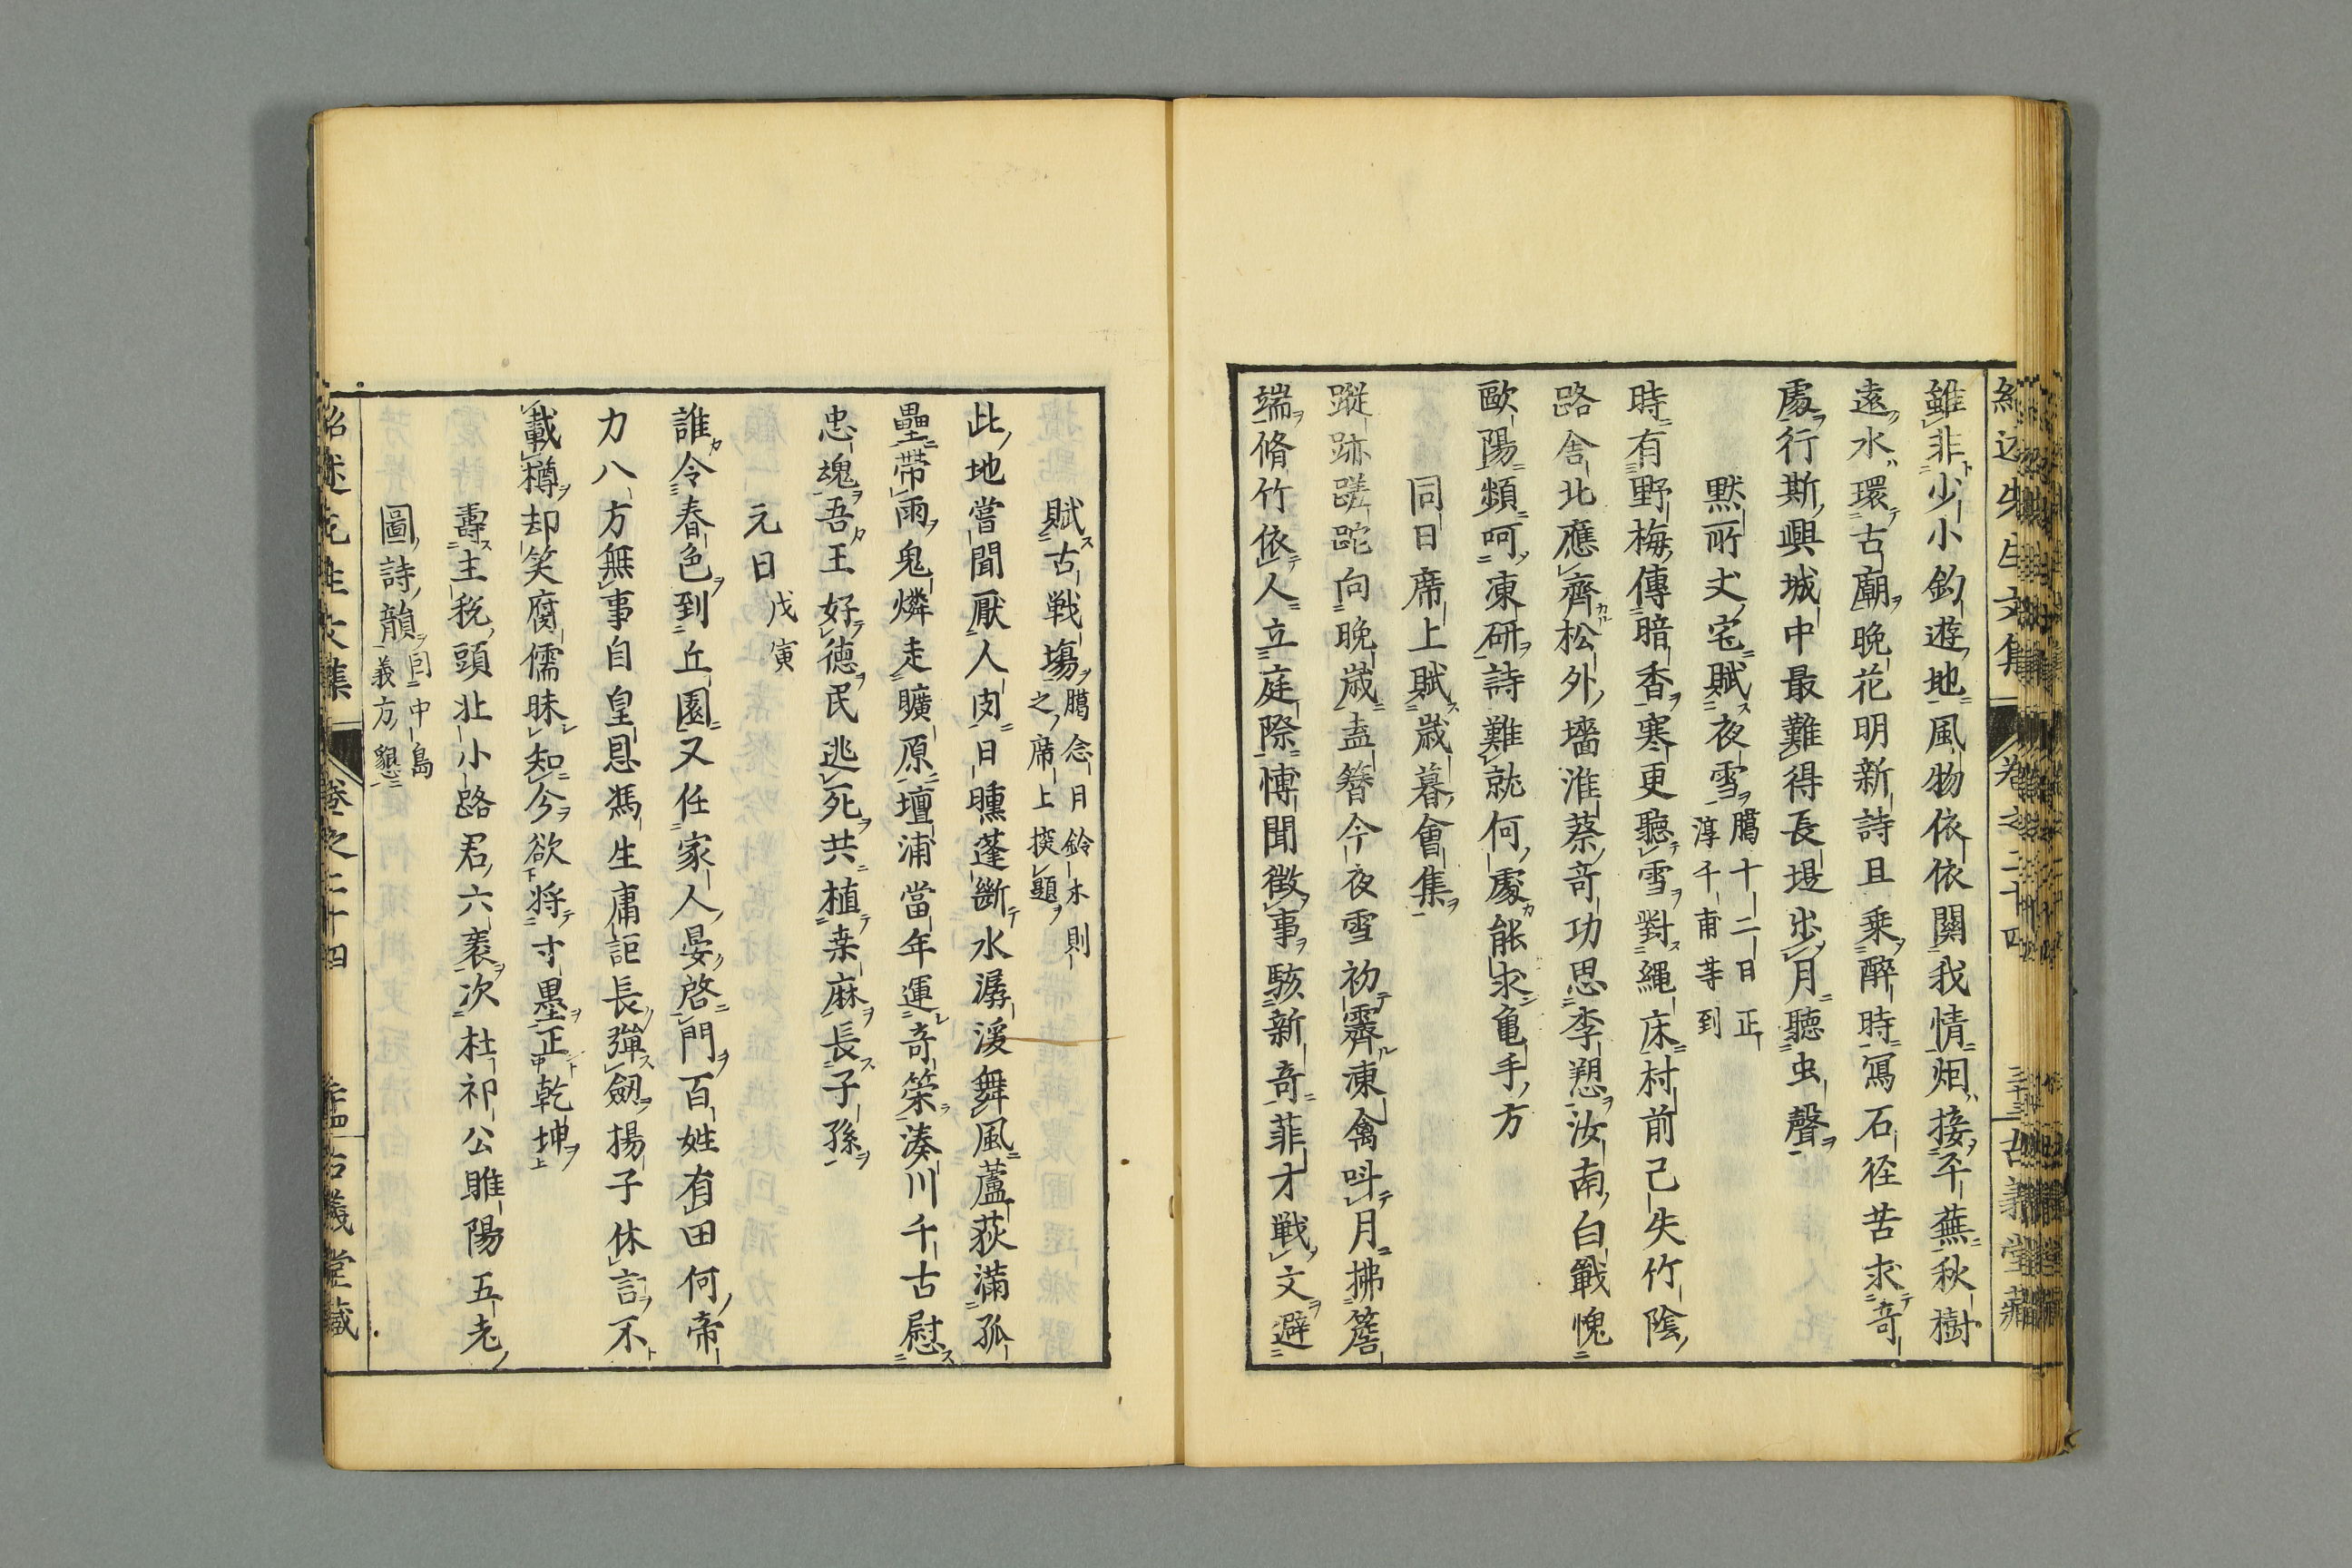 紹述先生文集 卷之二十四 三十三 古義堂藏
雖非少小釣遊地風物依依關我情烟接平蕪秋樹
遠水環古廟晚花明新詩且乗醉時寫石徑苦求奇
處行斯興城中最難得長堤步月聽虫聲
默所丈宅賦夜雪
臈十二日正
淳千甫等到
時有野梅傳暗香寒更聽雪對繩床村前已失竹陰
路舎北應齊松外墻淮蔡奇功思李愬汝南白戰愧
歐陽頻呵凍研詩難就何處能求亀手方
同日席上賦歳暮會集
蹤跡蹉跎向晚歳盍簪今夜雪初霽凍禽呌月拂簷
端脩竹依人立庭際愽聞徴事駭新奇菲才戰文避
賦古戦塲
臈念一月鈴木則
之席上探題
此地嘗聞厭人肉日曛蓬斷水潺湲舞風蘆荻滿孤
壘帶雨鬼燐走曠原壇浦當年運奇策湊川千古慰
忠魂吾王好德民逃死共植桒麻長子孫
元日
戊寅
誰令春色到丘園又任家人晏啓門百姓有田何帝
力八方無事自皇恩馮生庸詎長彈劔揚子休言不
載樽却笑腐儒昧知分欲将寸墨正乾坤
壽主稅頭北小路君六袠次杜祁公睢陽五老
圖詩韻
同中島
義方懇
紹述先生文集 卷之二十四 三十四 古義堂藏